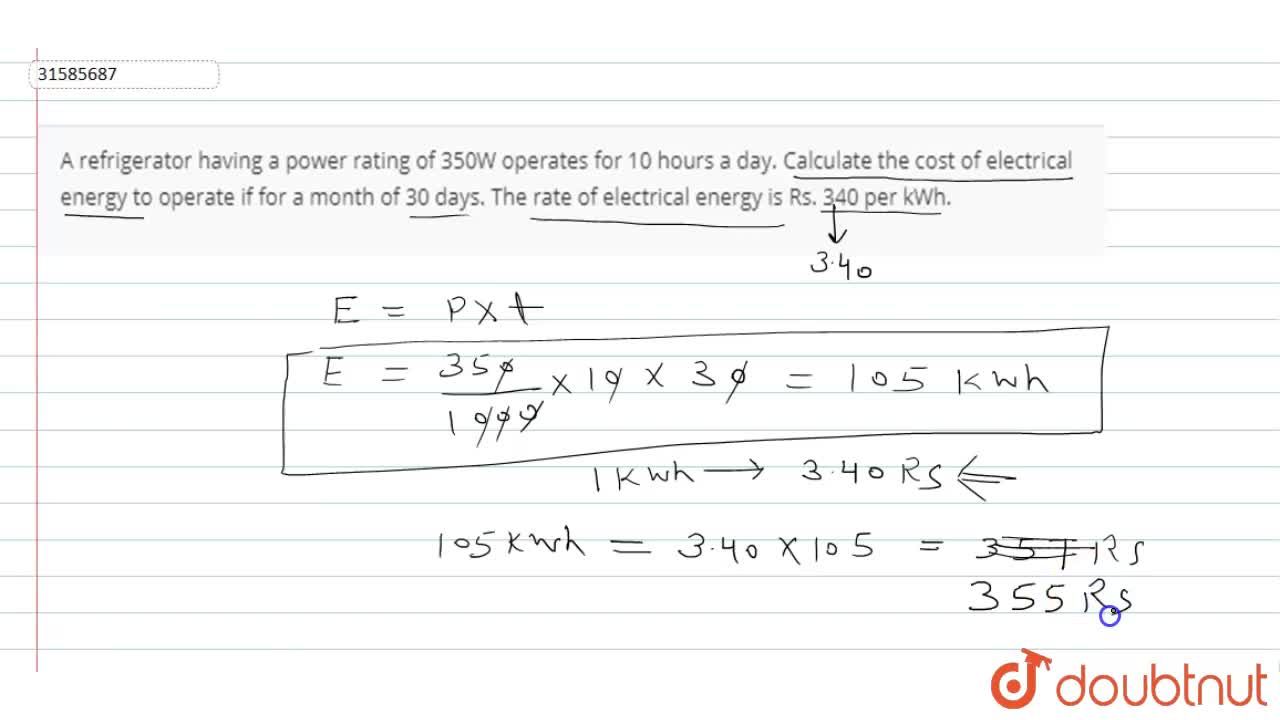 31585687
A refrigerator having a power rating of 350W operates for 10 hours a day. Calculate the cost of electrical
energy to operate if for a month of 30 days. The rate of electrical energy is Rs. 340 per kWh.
3.40
E = P x t
E = 350/1000 x 10 x 30 = 105 Kwh
1 Kwh → 3.40 Rs ⇐
105 Kwh = 3.40 x 105 = 357 Rs
355 Rs
doubtnut